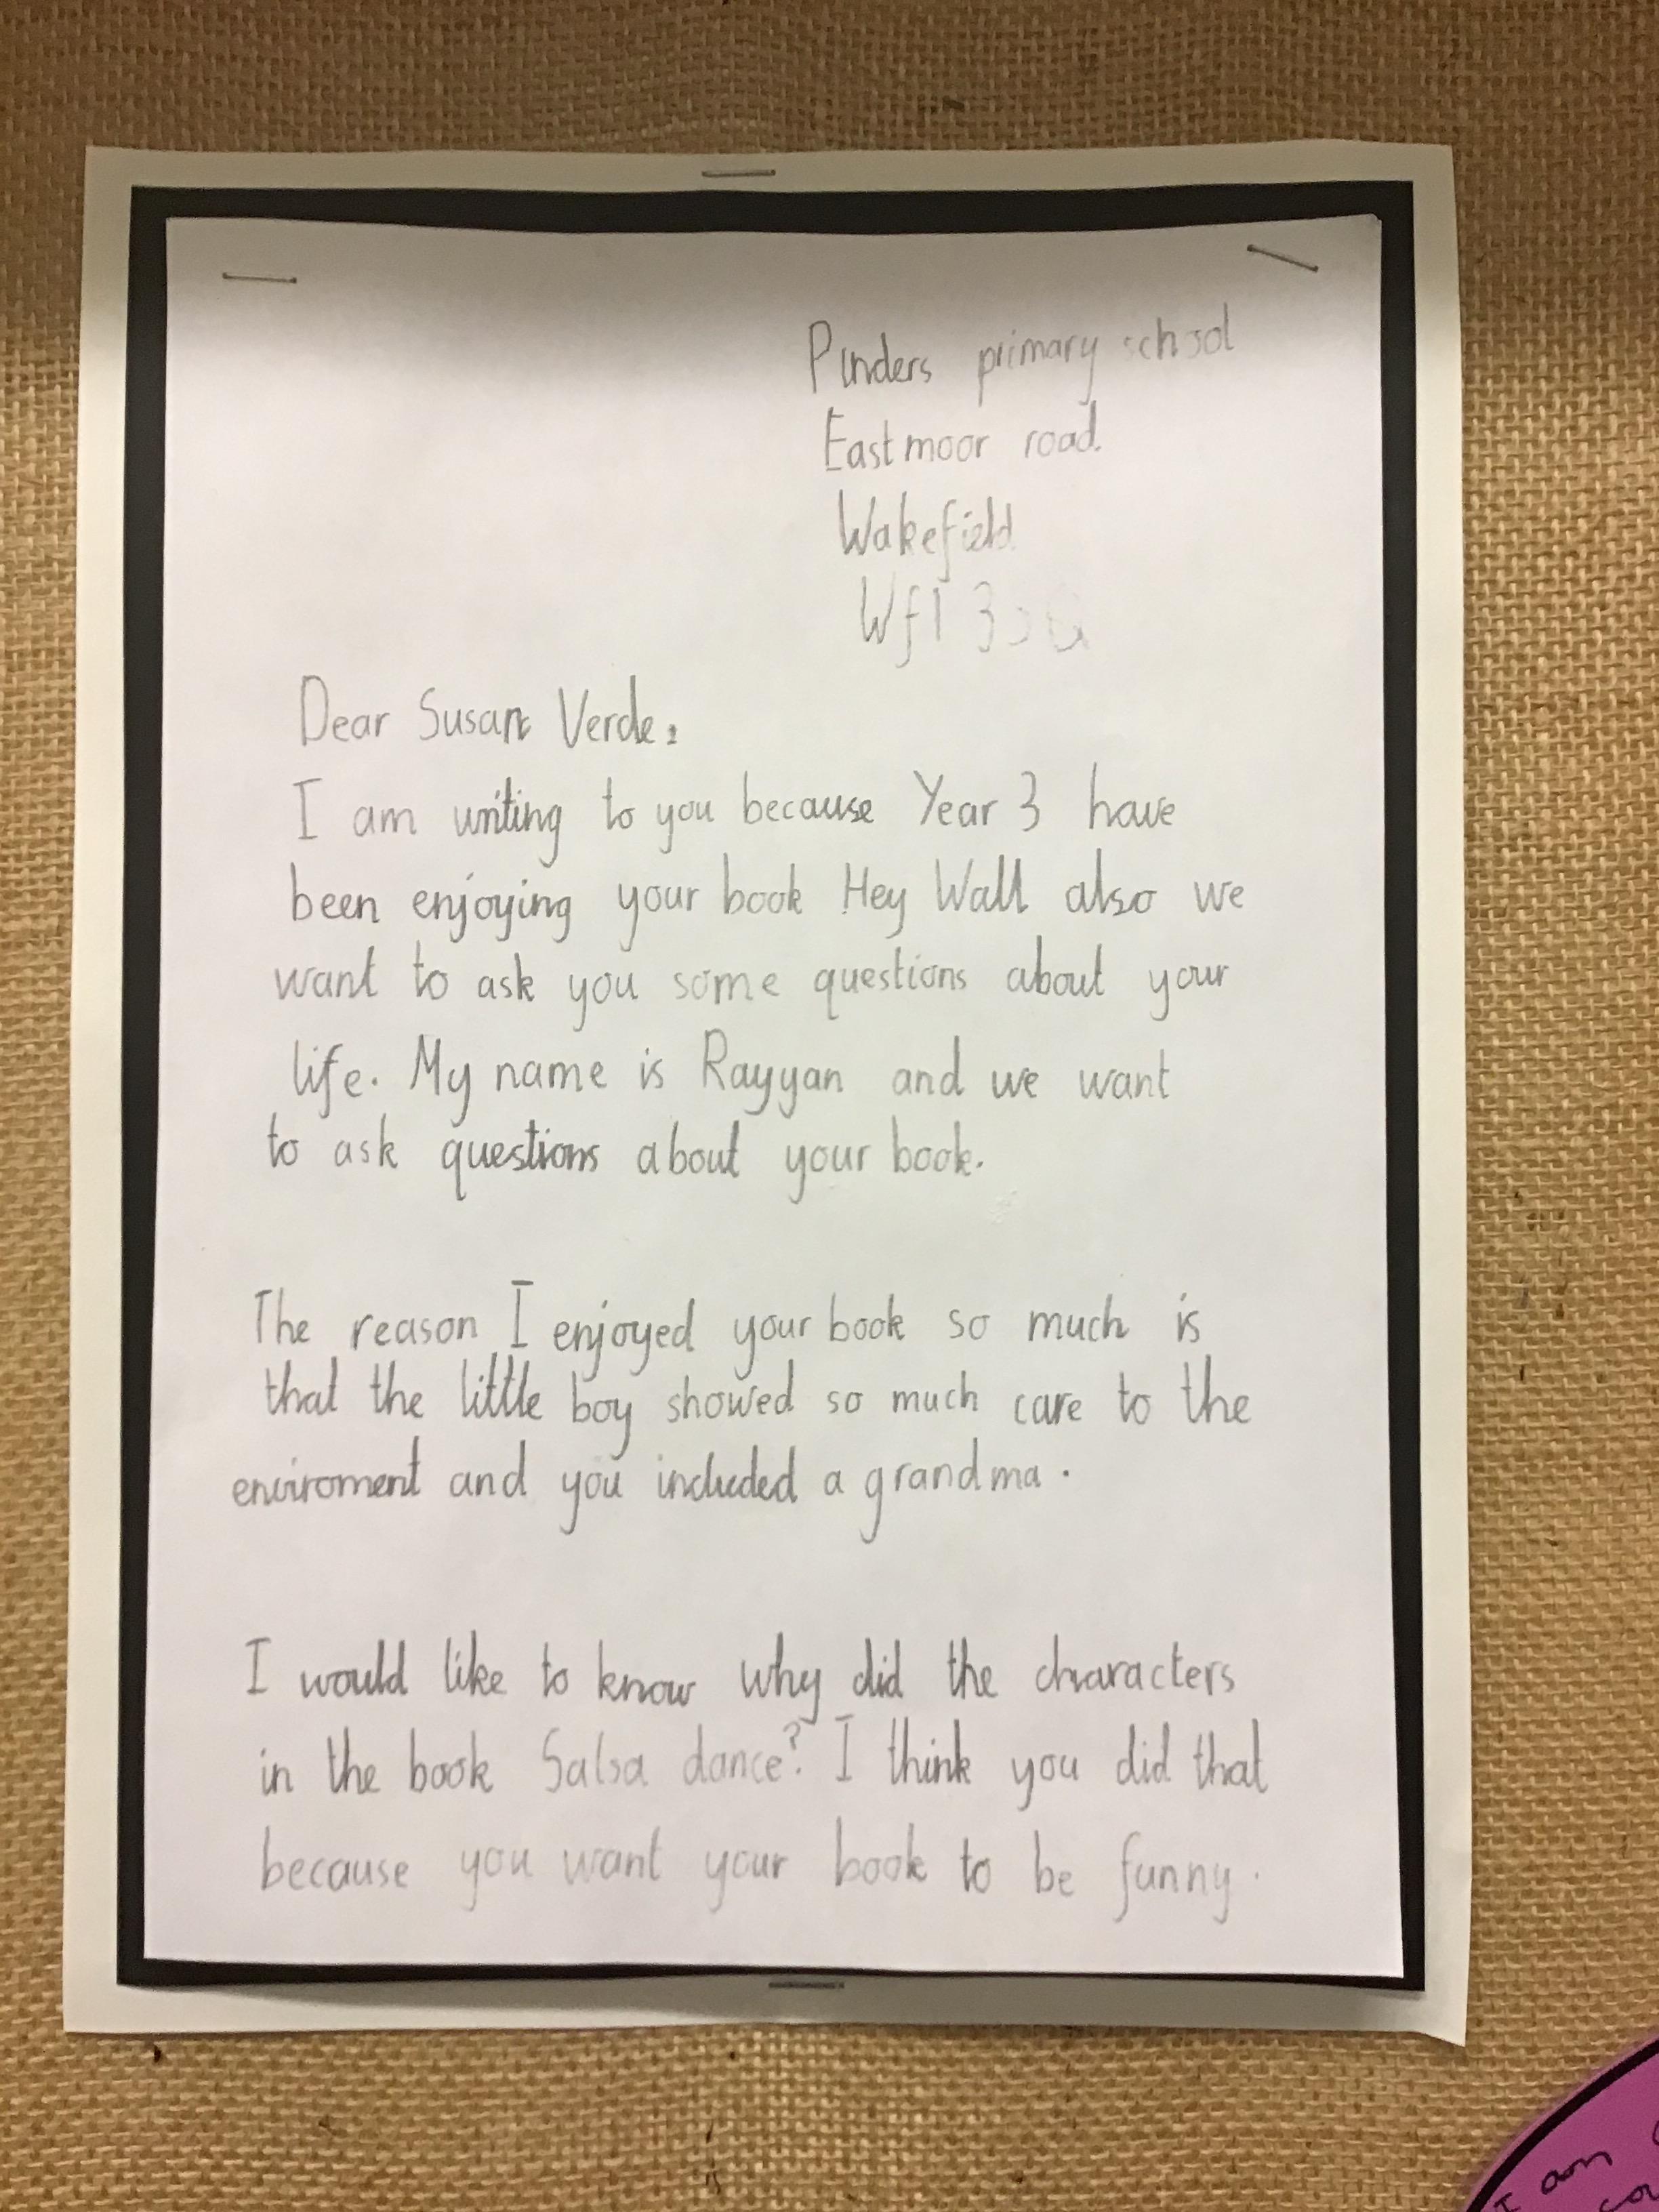 Pinders primary school
Eastmoor road.
Wakefield
Wf1 3
Dear Susan Verde,
I am writing to you because Year 3 have
been enjoying your book Hey Wall also we
want to ask you some questions about your
life. My name is Rayyan and we want
to ask questions about your book.
The reason I enjoyed your book so much is
that the little boy showed so much care to the
enviroment and you included a grandma.
I would like to know why did the characters
in the book Salsa dance? I think you did that
because you want your book to be funny.
I am